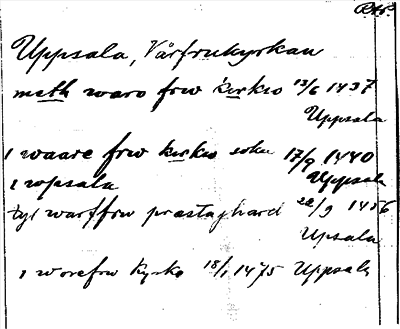 Uppsala, Vårfrukyrkan
meth waro frw kirkio 13/6 1437
Uppsala
i waare frw kirkio sokn 17/9 1440
i wpsala Uppsala
til warffrw præstaghard 22/9 1456
Upsala
i worefrw kyrko 18/1 1475 Uppsala